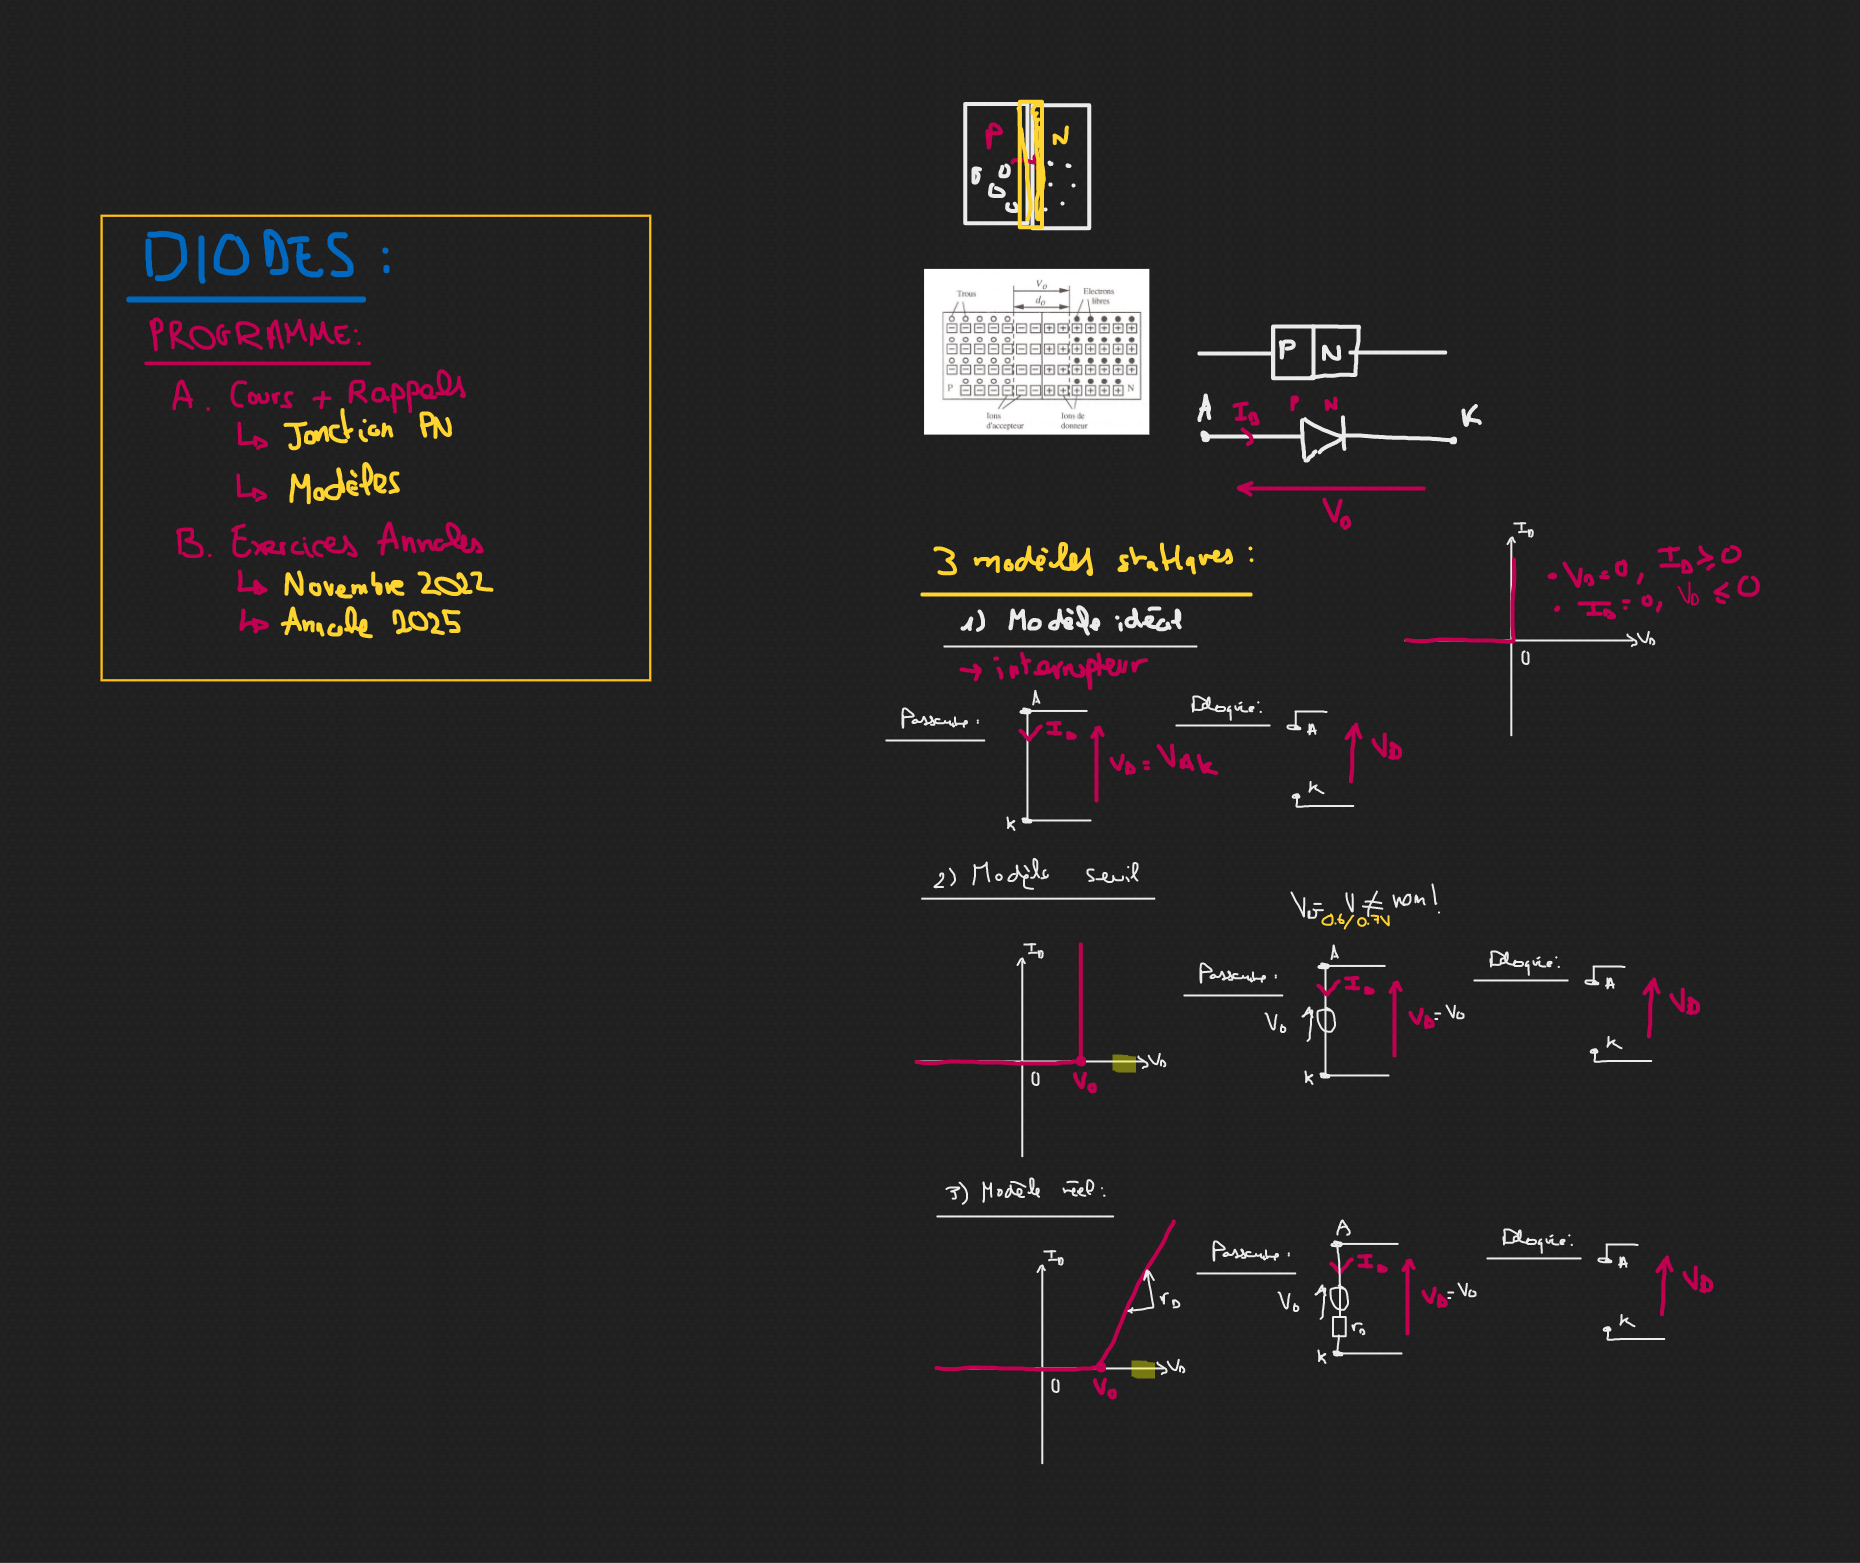 DIODES :
PROGRAMME:
A. Cours + Rappels
↳ Jonction PN
↳ Modèles
B. Exercices Annales
↳ Novembre 2022
↳ Annale 2025
P N
V0
Trous
d0
Electrons
libres
P N
Ions
d'accepteur
Ions de
donneur
P N
A ID P N K
VD
3 modèles statiques :
1) Modèle idéal
→ interrupteur
ID
• VD = 0, ID ≥ 0
• ID = 0, VD ≤ 0
VD
0
Passante :
A
ID
VD = VAK
K
Bloquée :
A
VD
K
2) Modèle seuil
0.6/0.7V
ID
0
V0
VD
Passante :
A
ID
V0
VD = V0
K
Bloquée :
A
VD
K
3) Modèle réel :
ID
rD
0
V0
VD
Passante :
A
ID
V0
VD = V0
rD
K
Bloquée :
A
VD
K